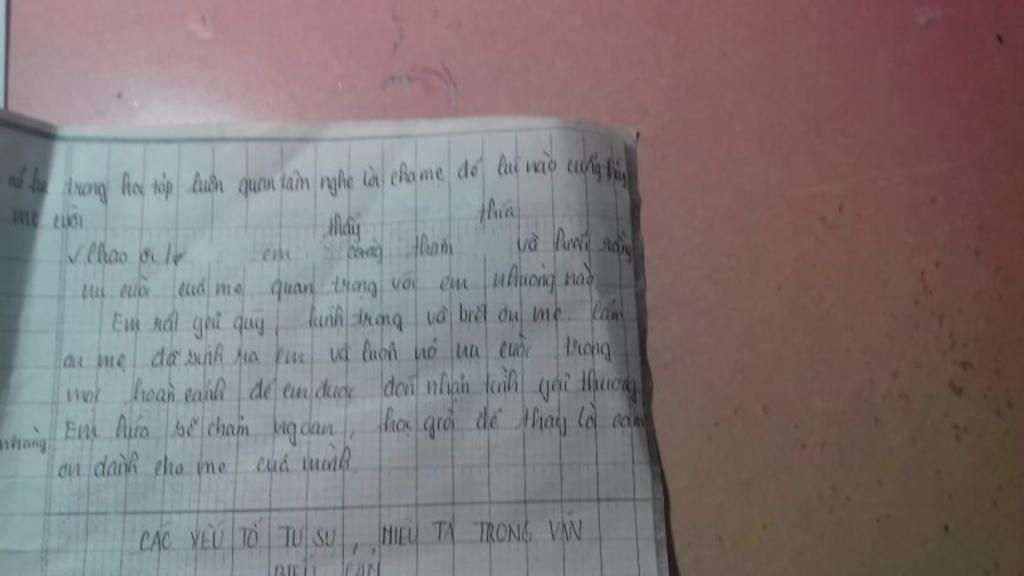 trong học tập luôn quan tâm nghe lời cha mẹ để lúc nào cũng thấy
mẹ cười
thấy thía
Chao ôi! em càng thấm và hiểu rằng
nụ cười của mẹ quan trọng với em nhường nào
Em rất yêu quý, kính trọng và biết ơn mẹ. Cảm
ơn mẹ đã sinh ra em và luôn nở nụ cười trong
mọi hoàn cảnh để em được đón nhận tình yêu thương
Em hứa sẽ chăm ngoan, học giỏi để thay lời cảm
nhàng
ơn dành cho mẹ của mình.
CÁC YẾU TỐ TỰ SỰ, MIÊU TẢ TRONG VĂN
BIỂU CẢM